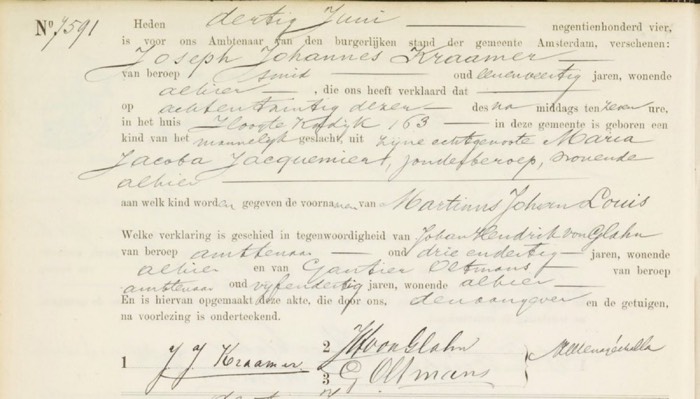 No 7591 Heden dertig Juni negentienhonderd vier,
is voor ons Ambtenaar van den burgerlijken stand der gemeente Amsterdam, verschenen:
Joseph Johannes Kraamer
van beroep smid oud eenenveertig jaren, wonende
alhier, die ons heeft verklaard dat
op achtentwintig dezer des na middags ten zeven ure,
in het huis Hoogte Kadijk 163 in deze gemeente is geboren een
kind van het mannelijk geslacht, uit zijne echtgenoote Maria
Jacoba Jacquemier, zonder beroep, wonende
alhier
aan welk kind worden gegeven de voornamen van Martinus Johann Louis
Welke verklaring is geschied in tegenwoordigheid van Johan Hendrik von Glahn
van beroep ambtenaar oud drie en dertig jaren, wonende
alhier en van Gautier Oltmans van beroep
ambtenaar oud vijfendertig jaren, wonende alhier
En is hiervan opgemaakt deze akte, die door ons, den aangever en de getuigen,
na voorlezing is onderteekend.
1 J. J. Kraamer
2 JHvonGlahn
3 G Oltmans